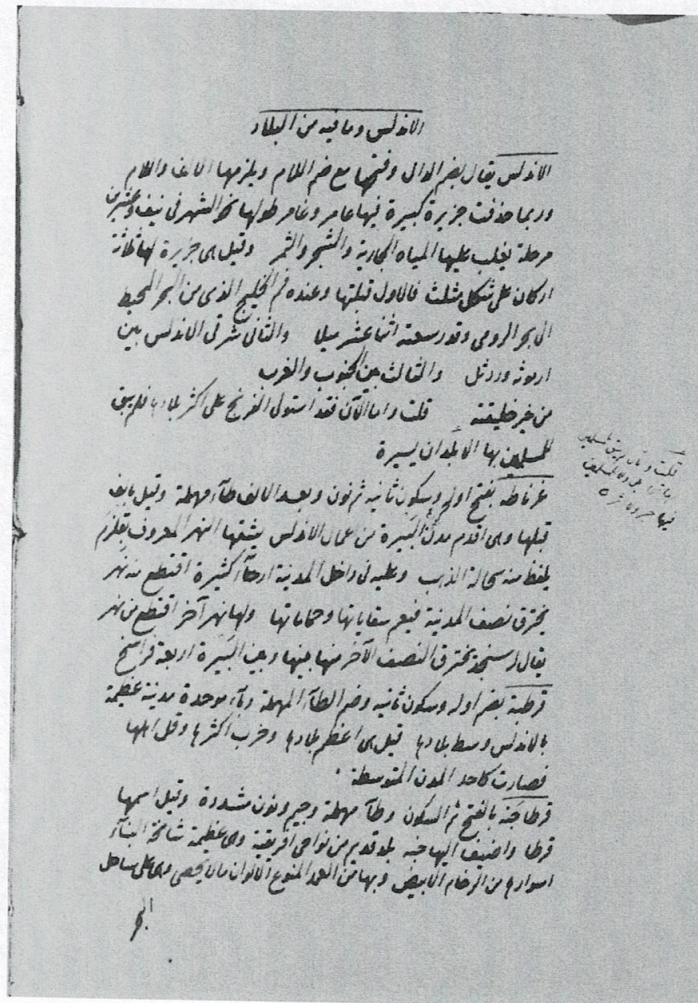 الاندلس وما فيه من البلاد
الاندلس يقال بضم الدال وفتحها مع ضم اللام ويلزمها الالف واللام
وربما حذفت جزيرة كبيرة فيها عامر وغامر طولها نحو الشهر في نيف وعشرين
مرحلة يغلب عليها المياه الجارية والشجر والثمر وقيل هى جزيرة لها ثلاثة
اركان على شكل مثلث فالاول قبلتها وعنده فم الخليج الذى من البحر المحيط
الى بحر الرومى وقدر سعته اثنا عشر ميلا والثانى شرقى الاندلس بين
اربونه وردثل والثالث بين الجنوب والغرب
من خبر خليقته قلت واما الآن فقد استولى الفرنج على اكثر بلادها فلم يبق
للمسلمين بها الا بلدان يسيرة
غرناطه بفتح اوله وسكون ثانيه ثم نون وبعد الالف طاء مهملة وقيل بالف
قبلها وهى اقدم مدن البيرة من اعمال الاندلس يشقها النهر المعروف بقلزم
يلقط منه سحالة الذهب وعليه فى داخل المدينة ارحاء كثيرة اقتطع منه نهر
يخترق نصف المدينة فيعم سقاياتها وحماماتها ولها نهر آخر اقتطع من نهر
يقال له سنجد يخترق النصف الآخر منها بينها وبين البيرة اربعة فراسخ
قرطبة بضم اوله وسكون ثانيه وضم الطاء المهملة وباء موحدة مدينة عظيمة
بالاندلس وسط بلادها قيل هى اعظم بلادها وخرب اكثرها وقل اهلها
فصارت كاحد المدن المتوسطة
قرطاجنة بالفتح ثم السكون وطاء مهملة وجيم ونون مشددة وقيل اسمها
قرطا واضيف اليها جنه بلد قديم من نواحى افريقية وهى عظيمة شامخة البناء
اسوارها من الرخام الابيض وبها من العمد المتنوع الالوان مالا يحصى وهى على ساحل
البحر
قلت